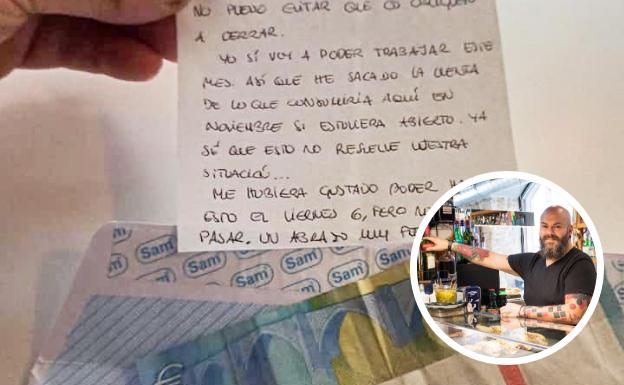 NO PUEDO EVITAR QUE OS OBLIGUEN
A CERRAR.
YO SÍ VOY A PODER TRABAJAR ESTE
MES. ASÍ QUE HE SACADO LA CUENTA
DE LO QUE CONSUMIRÍA AQUÍ EN
NOVIEMBRE SI ESTUVIERA ABIERTO. YA
SÉ QUE ESTO NO RESUELVE VUESTRA
SITUACIÓN...
ME HUBIERA GUSTADO PODER
ESTO EL VIERNES 6, PERO
PASAR. UN ABRAZO MUY
Sam
Sam
Sam
Sam
Sam
Sam
Sam